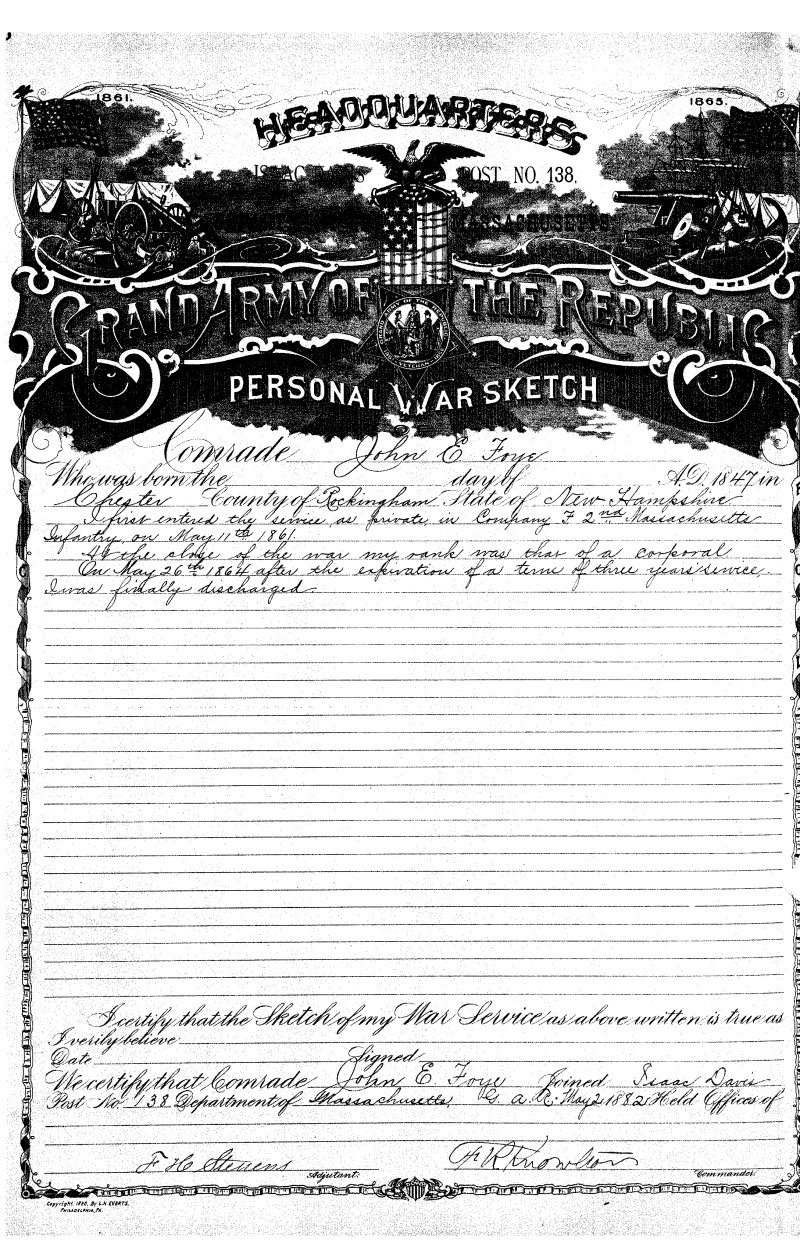 1861.
1865.
HEADQUARTERS
POST NO. 138,
MASSACHUSETTS
GRAND ARMY OF THE REPUBLIC
PERSONAL WAR SKETCH
Comrade John E Foye
Who was born the day of A.D. 1847 in
Chester County of Rockingham State of New Hampshire
I first entered the service as private in Company F 2nd Massachusetts
Infantry, on May 11th 1861.
At the close of the war my rank was that of a corporal
On May 26th 1864 after the expiration of a term of three years' service,
I was finally discharged.
I certify that the Sketch of my War Service as above written is true as
I verily believe
Date Signed
We certify that Comrade John E. Foye Joined Isaac Davis
Post No. 138 Department of Massachusetts, G. A. R. May 2 1882 Held Offices of
F H Stevens F R Knowlton
Adjutant. Commander.
Copyright 1890, By L.H. EVERTS,
PHILADELPHIA, PA.